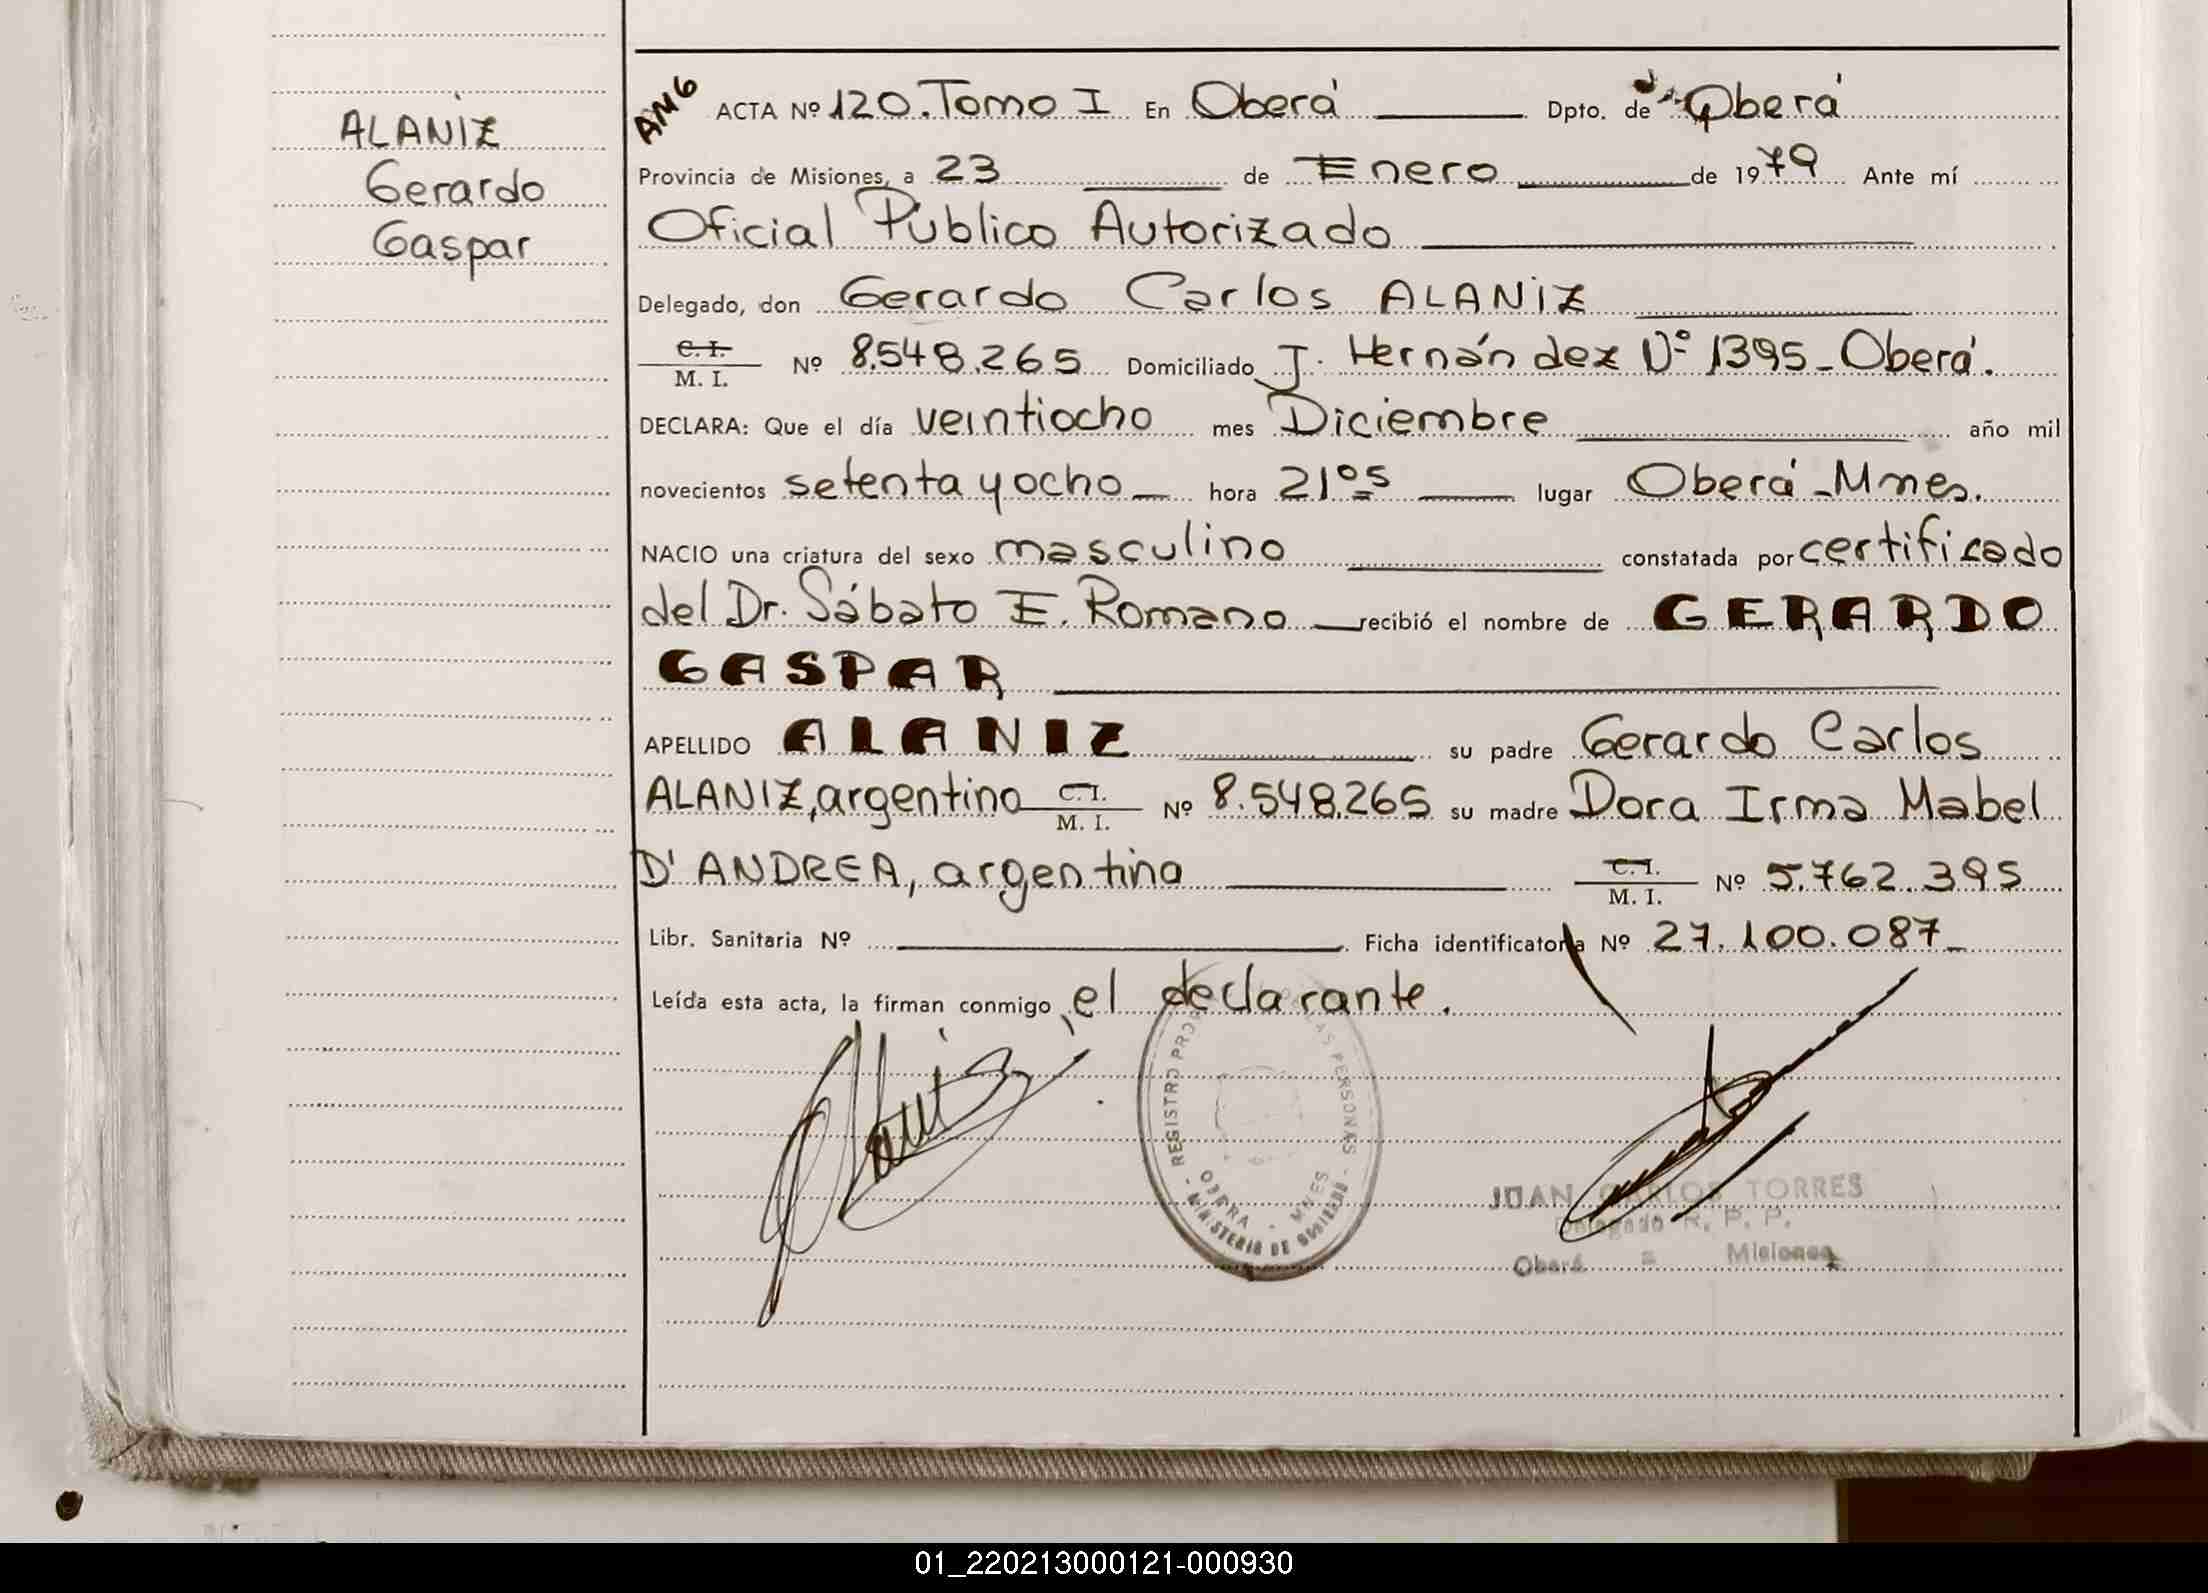 ALANIZ
Gerardo
Gaspar
AMG
ACTA Nº 120. Tomo I En Oberá Dpto. de Oberá
Provincia de Misiones, a 23 de Enero de 1979 Ante mí
Oficial Público Autorizado
Delegado, don Gerardo Carlos ALANIZ
C. I.
M. I. Nº 8.548.265 Domiciliado J. Hernández Nº 1395 - Oberá.
DECLARA: Que el día veintiocho mes Diciembre año mil
novecientos setenta y ocho hora 21º5 lugar Oberá - Mnes.
NACIO una criatura del sexo masculino constatada por certificado
del Dr. Sábato E. Romano recibió el nombre de GERARDO
GASPAR
APELLIDO ALANIZ su padre Gerardo Carlos
ALANIZ, argentino C. I. M. I. Nº 8.548.265 su madre Dora Irma Mabel
D'ANDREA, argentina C. I. M. I. Nº 5.762.395
Libr. Sanitaria Nº Ficha identificatoria Nº 27.100.087
Leída esta acta, la firman conmigo, el declarante.
REGISTRO PROV. DE LAS PERSONAS
OBERA - MNES
MINISTERIO DE GOBIERNO
JUAN CARLOS TORRES
Delegado R. P. P.
Oberá = Misiones
01_220213000121-000930